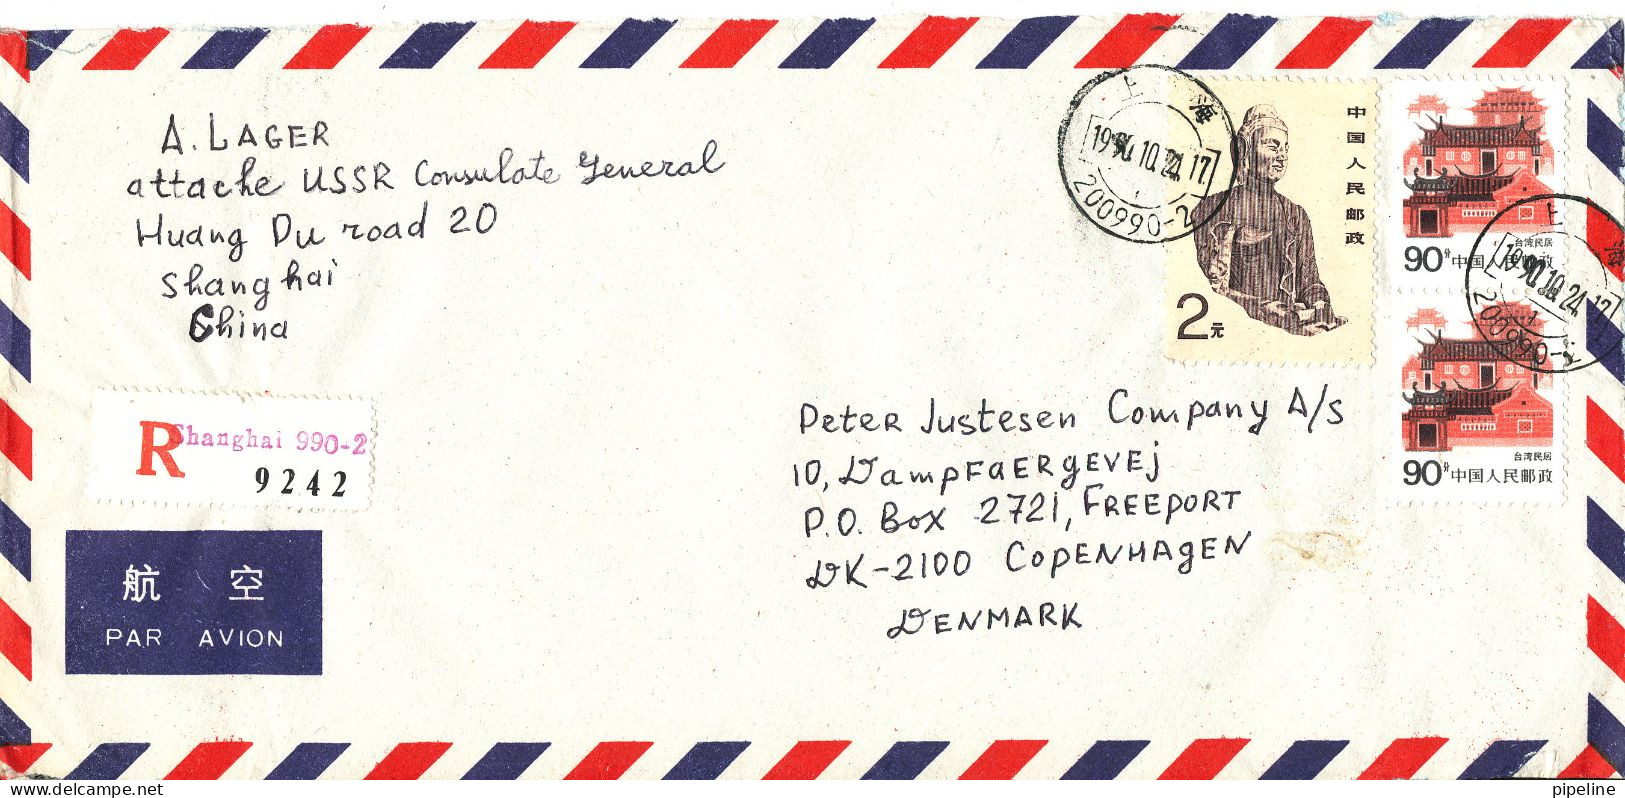 A. LAGER
attache USSR Consulate General
Huang Du road 20
Shanghai
China
R Shanghai 990-2
9242
航 空
PAR AVION
上 海
1990.10.24.17
200990-2
中国人民邮政
2元
台湾民居
90分 中国人民邮政
上 海
1990.10.24.17
台湾民居
90分 中国人民邮政
Peter Justesen Company A/S
10, DampFaERgEVEj
P.O. Box 2721, FREEPORT
DK-2100 COPENHAgEN
DENMARK
pipeline